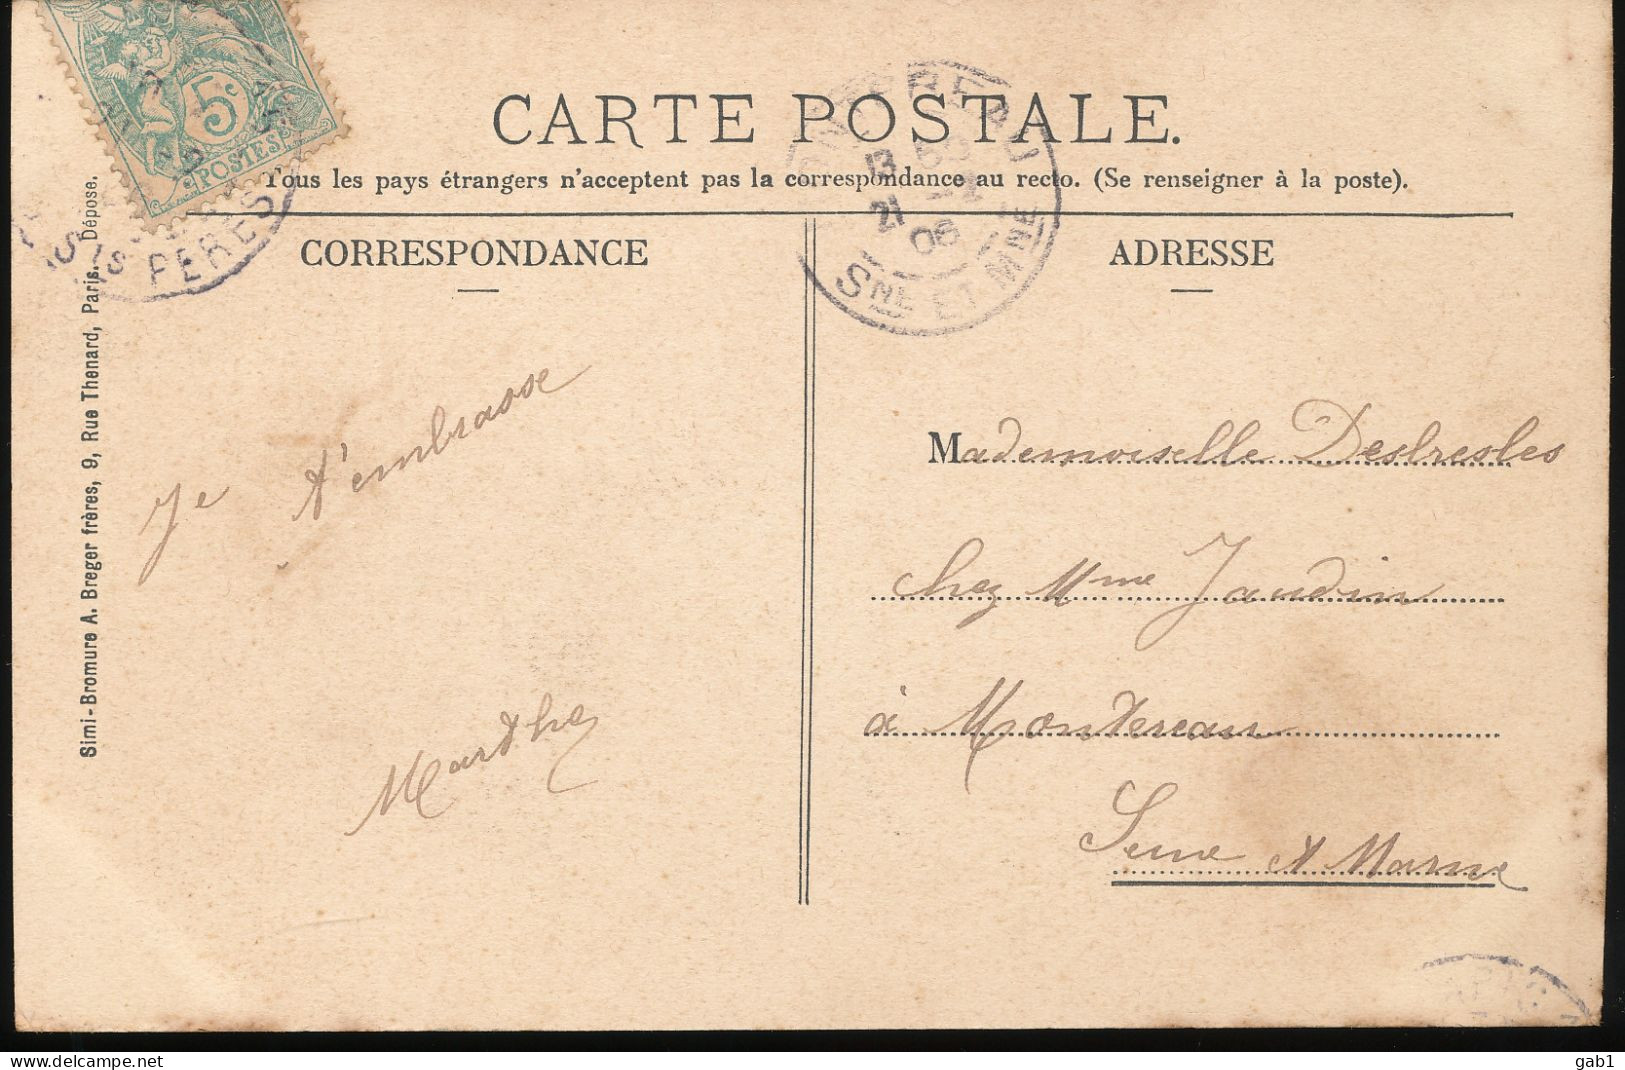 CARTE POSTALE.
Tous les pays étrangers n'acceptent pas la correspondance au recto. (Se renseigner à la poste).
CORRESPONDANCE
ADRESSE
5c
POSTES
PERES
13
21
06
SNE ET MNE
Simi-Bromure A. Breger frères, 9, Rue Thenard, Paris. Dépose.
Je t'embrasse
Marthe
Mademoiselle Destresles
chez Mme Jaudin
à Montereau
Seine et Marne
delcampe.net
gab1